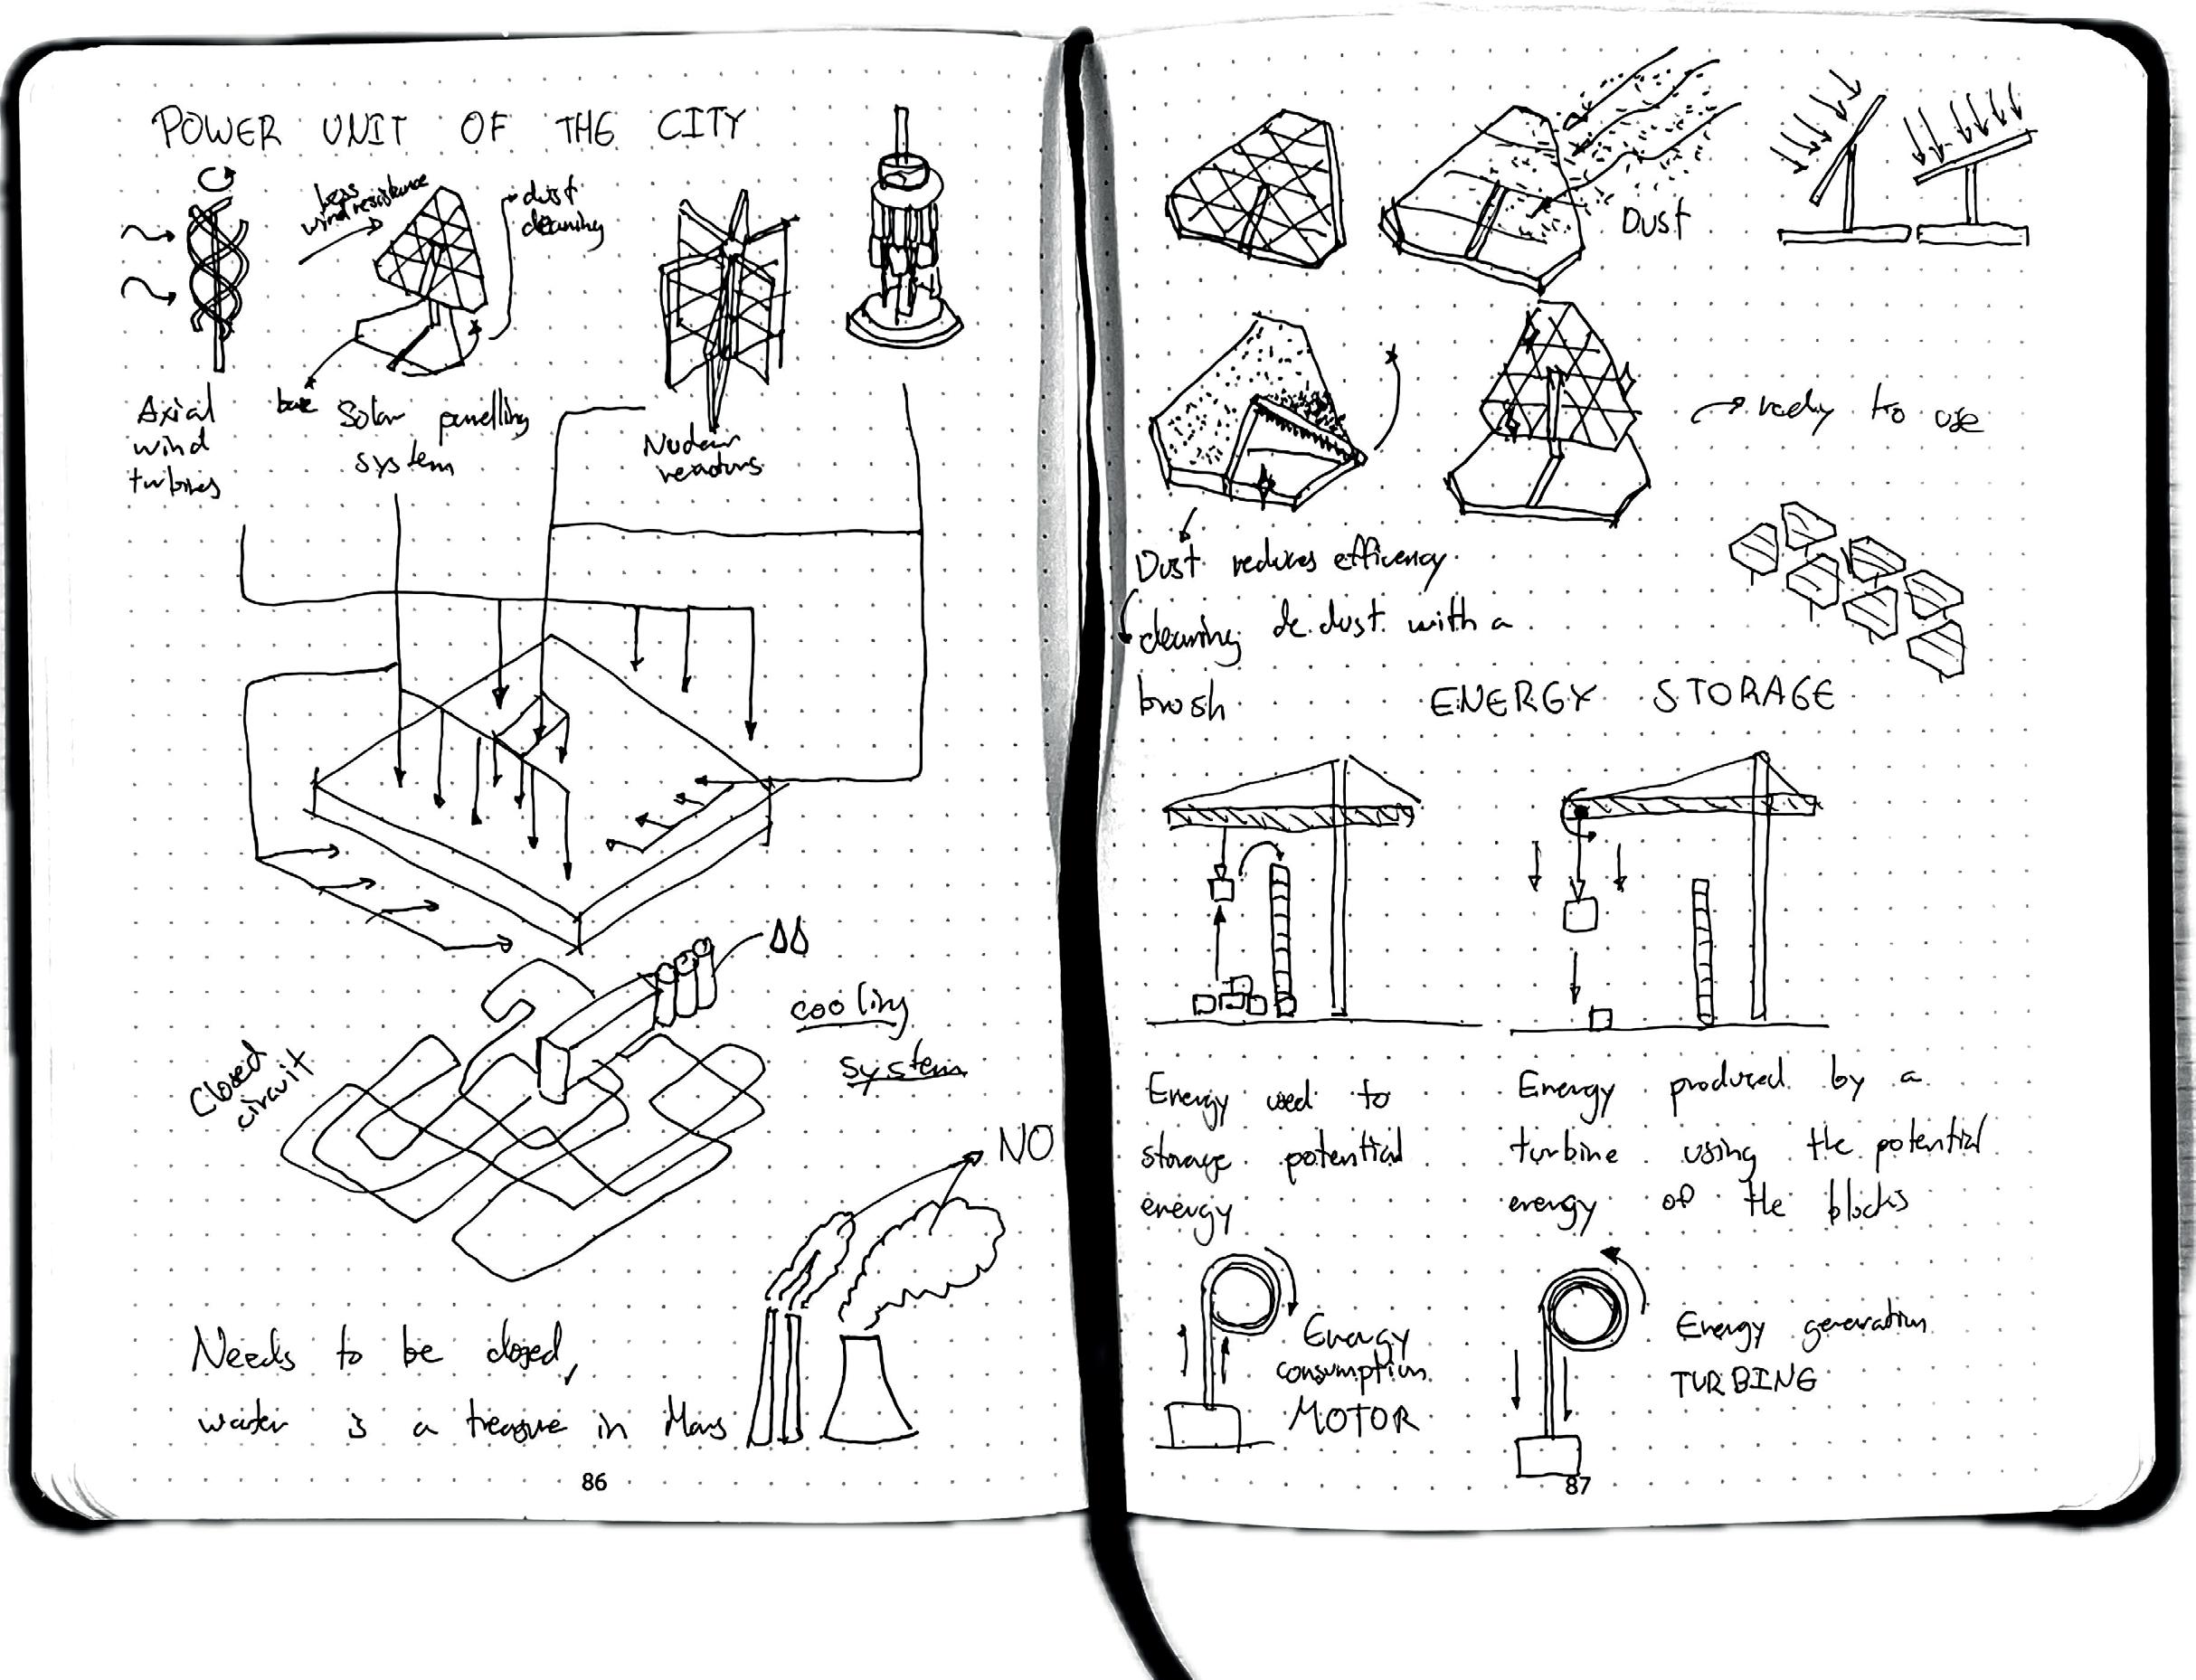 POWER UNIT OF THE CITY
less
wind resistance
dust
cleaning
Axial
wind
turbines
base
Solar panelling
system
Nuclear
reactors
cooling
system
Closed
circuit
NO
Needs to be closed,
water is a treasure in Mars
86
Dust
ready to use
Dust reduces efficency
cleaning de dust with a
brush
ENERGY STORAGE
Energy used to
storage potential
energy
Energy produced by a
turbine using the potential
energy of the blocks
Energy
consumption
MOTOR
Energy generation
TURBING
87